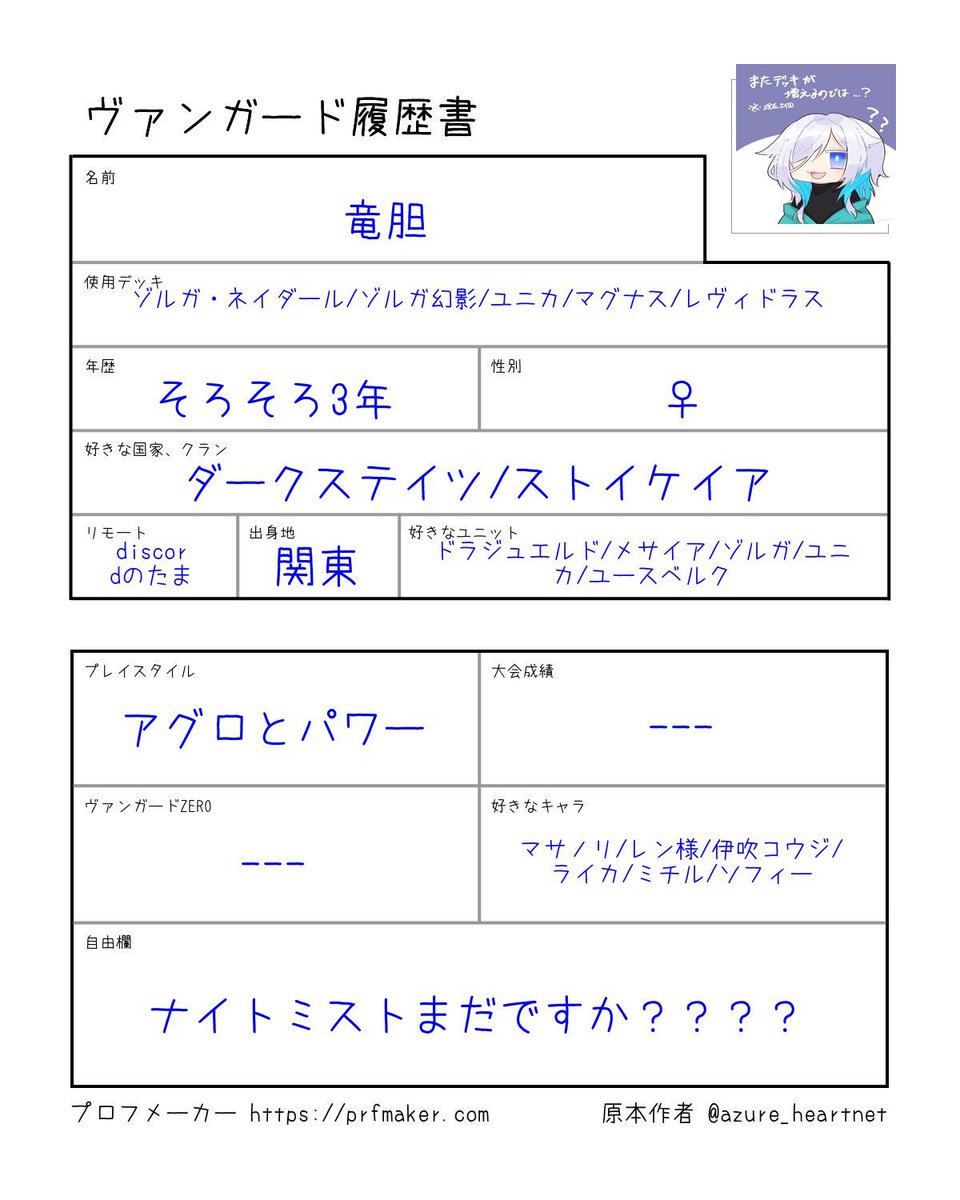 ヴァンガード履歴書
またデッキが
増えるのでは…?
??
名前
竜胆
使用デッキ
ゾルガ・ネイダール/ゾルガ幻影/ユニカ/マグナス/レヴィドラス
年歴
そろそろ3年
性別
♀
好きな国家、クラン
ダークステイツ/ストイケイア
リモート
discor
dのたま
出身地
関東
好きなユニット
ドラジュエルド/メサイア/ゾルガ/ユニ
カ/ユースベルク
プレイスタイル
アグロとパワー
大会成績
---
ヴァンガードZERO
---
好きなキャラ
マサノリ/レン様/伊吹コウジ/
ライカ/ミチル/ソフィー
自由欄
ナイトミストまだですか????
プロフメーカー https://prfmaker.com
原本作者 @azure_heartnet